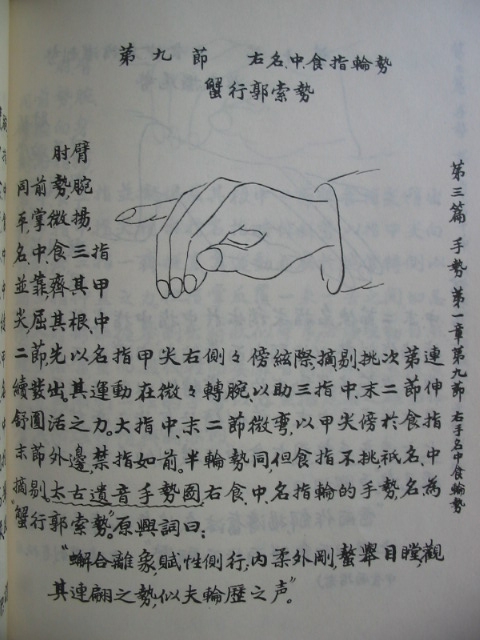 第九節　右名、中、食指輪勢
蟹行郭索勢
肘、臂
同前勢,腕
平,掌微揚
名、中、食三指
並靠齊,其甲
尖屈其根、中
二節,先以名指甲尖右側々傍絃際,摘剔、挑次第連
續彈出。其運動在微々轉腕,以助三指中、末二節伸
舒圓活之力。大指中、末二節微彎,以甲尖傍於食指
末節外邊,禁指如前。半輪勢同,但食指不挑,衹名、中
摘剔。太古遺音手勢圖右食中名指輪的手勢,名為
“蟹行郭索勢”。原興詞曰:
“蠏合離象,賦性側行;內柔外剛,螯舉目瞠,觀
其連翩之勢,似夫輪歷之声”。
第三篇 手勢 第一章第九節 右手名中食輪勢